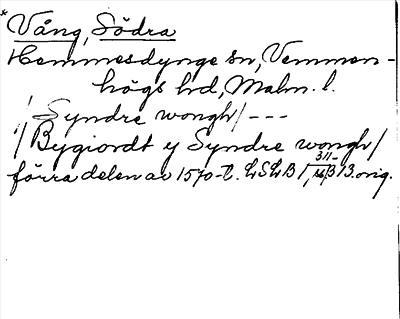 * Vång, Södra
Hemmesdynge sn, Vemmen-
högs hd, Malm. l.
/ Syndre wongh/ ---
/ Bygiordt y Syndre wongh/
förra delen av 1570-t. LSLB I, B 13. orig.